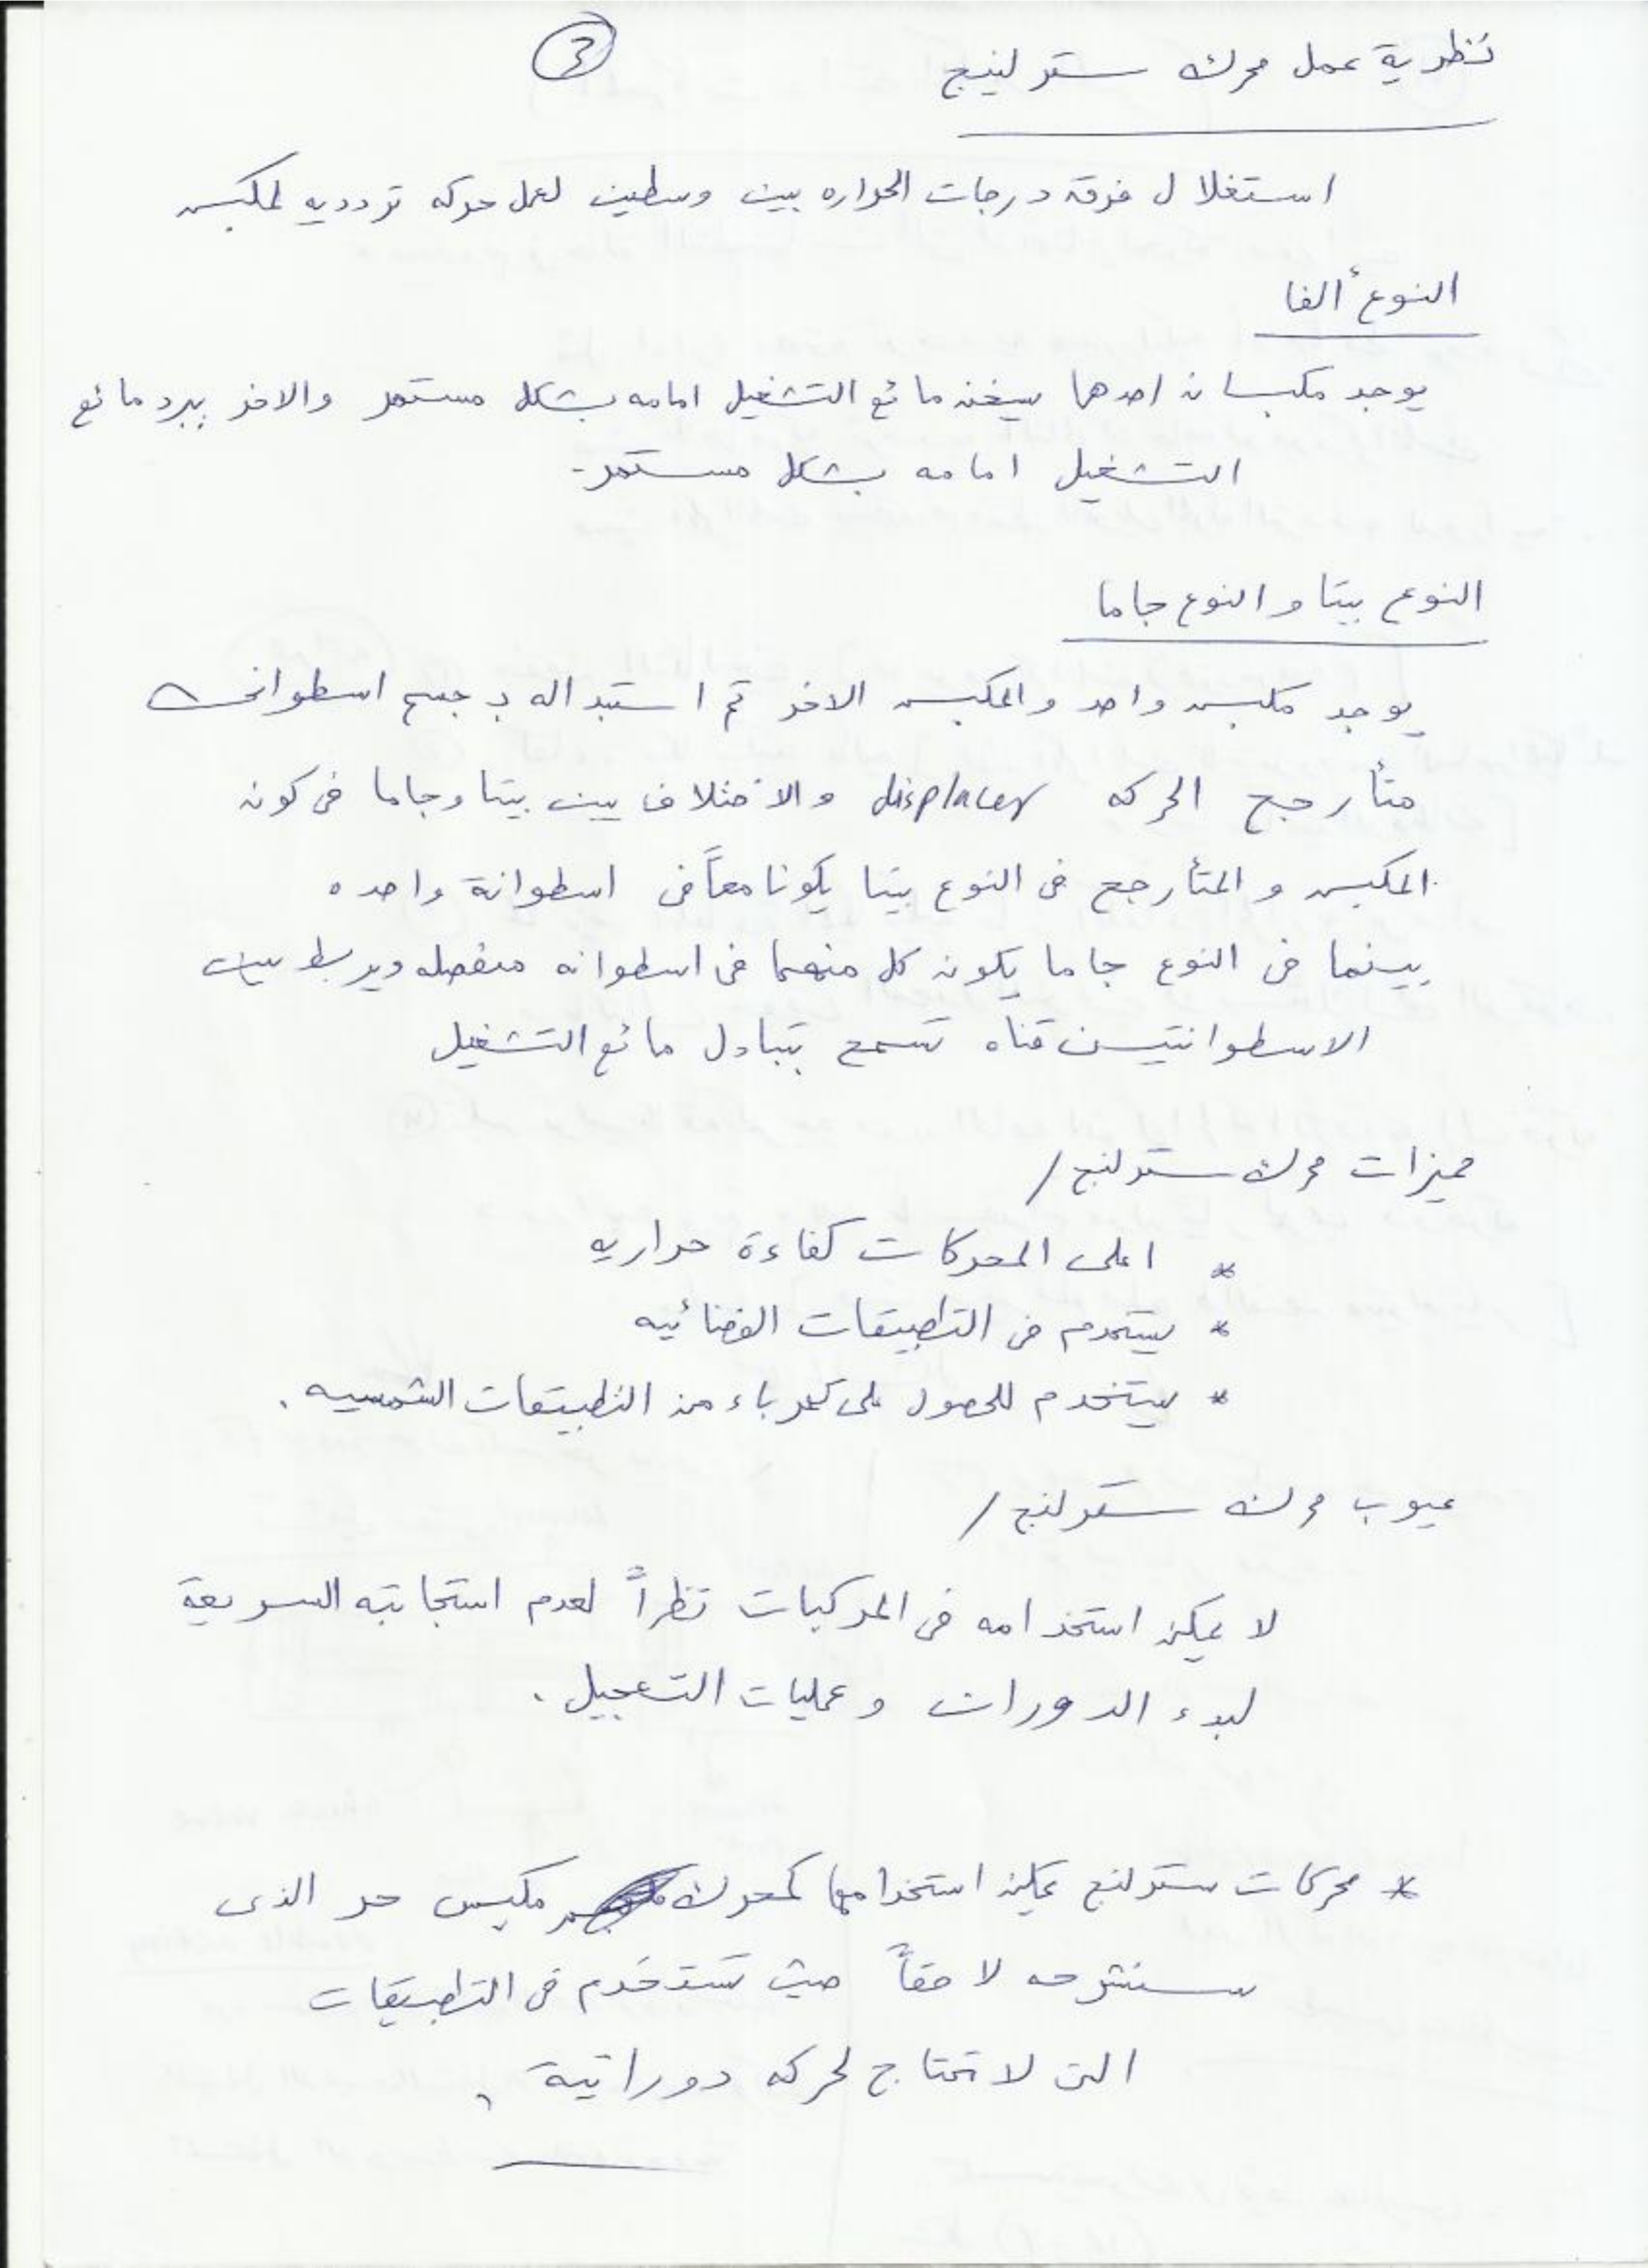 3
نظرية عمل محرك سترلينج
استغلال فرق درجات الحراره بين وسطين لعمل حركه تردديه لمكبس
النوع ألفا
يوجد مكبسان احدهما يسخن مائع التشغيل امامه بشكل مستمر والاخر يبرد مائع
التشغيل امامه بشكل مستمر.
النوع بيتا و النوع جاما
يوجد مكبس واحد والمكبس الاخر تم استبداله بـ جسم اسطوانى
متأرجح الحركه displacer والاختلاف بين بيتا وجاما فى كون
المكبس و المتأرجح فى النوع بيتا يكونا معاً فى اسطوانة واحده
بينما فى النوع جاما يكون كل منهما فى اسطوانه منفصله ويربط بين
الاسطوانتين قناه تسمح بتبادل مائع التشغيل
مميزات محرك سترلنج /
* اعلى المحركات كفاءة حراريه
* يستخدم فى التطبيقات الفضائيه
* يستخدم للحصول على كهرباء من التطبيقات الشمسيه .
عيوب محرك سترلنج /
لا يمكن استخدامه فى المركبات نظراً لعدم استجابته السريعة
لبدء الدوران و عمليات التعجيل .
* محركات سترلنج يمكن استخدامها كمحرك مكبس حر الذى
سنشرحه لاحقاً حيث تستخدم فى التطبيقات
التى لا تحتاج لحركه دورانية .